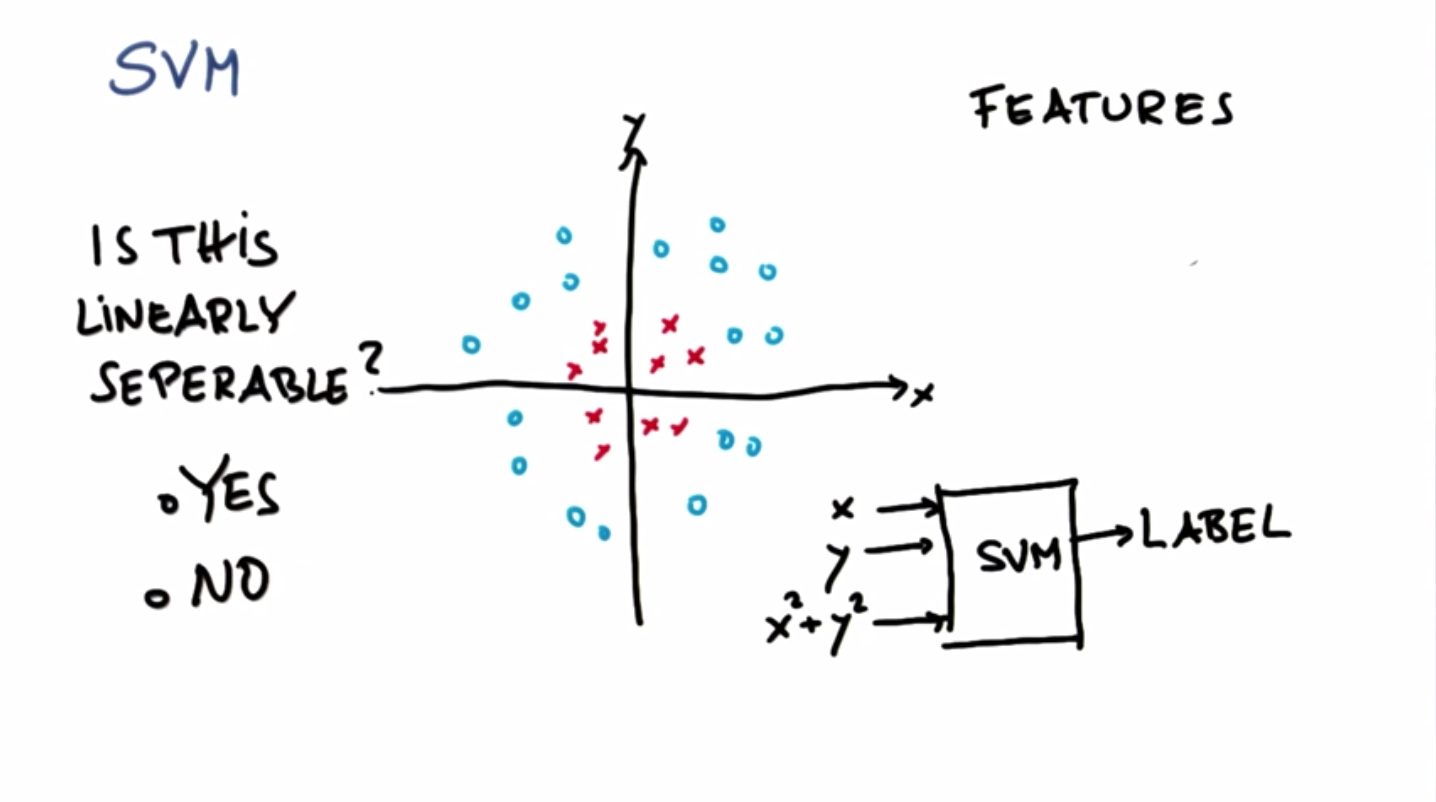 SVM
FEATURES
Y
IS THIS
LINEARLY
SEPERABLE?
x
YES
NO
x
y
x²+y²
SVM
LABEL